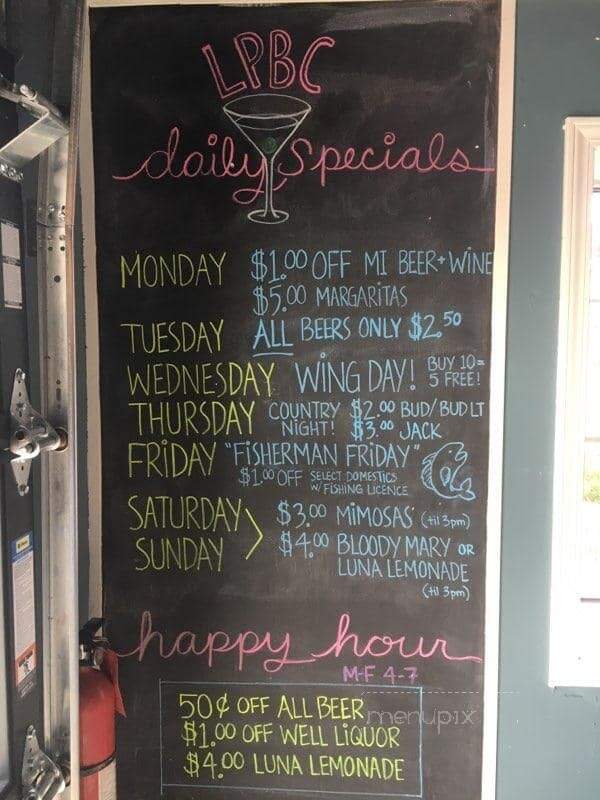 LPBC
daily Specials
MONDAY $1.00 OFF MI BEER + WINE
$5.00 MARGARITAS
TUESDAY ALL BEERS ONLY $2.50
WEDNESDAY WING DAY! BUY 10 = 5 FREE!
THURSDAY COUNTRY NIGHT! $2.00 BUD/BUD LT
$3.00 JACK
FRIDAY "FISHERMAN FRIDAY"
$1.00 OFF SELECT DOMESTICS
W/ FISHING LICENCE
SATURDAY $3.00 MIMOSAS (til 3pm)
SUNDAY $4.00 BLOODY MARY OR
LUNA LEMONADE
(til 3pm)
happy hour
M-F 4-7
50¢ OFF ALL BEER
$1.00 OFF WELL LIQUOR
$4.00 LUNA LEMONADE
menupix